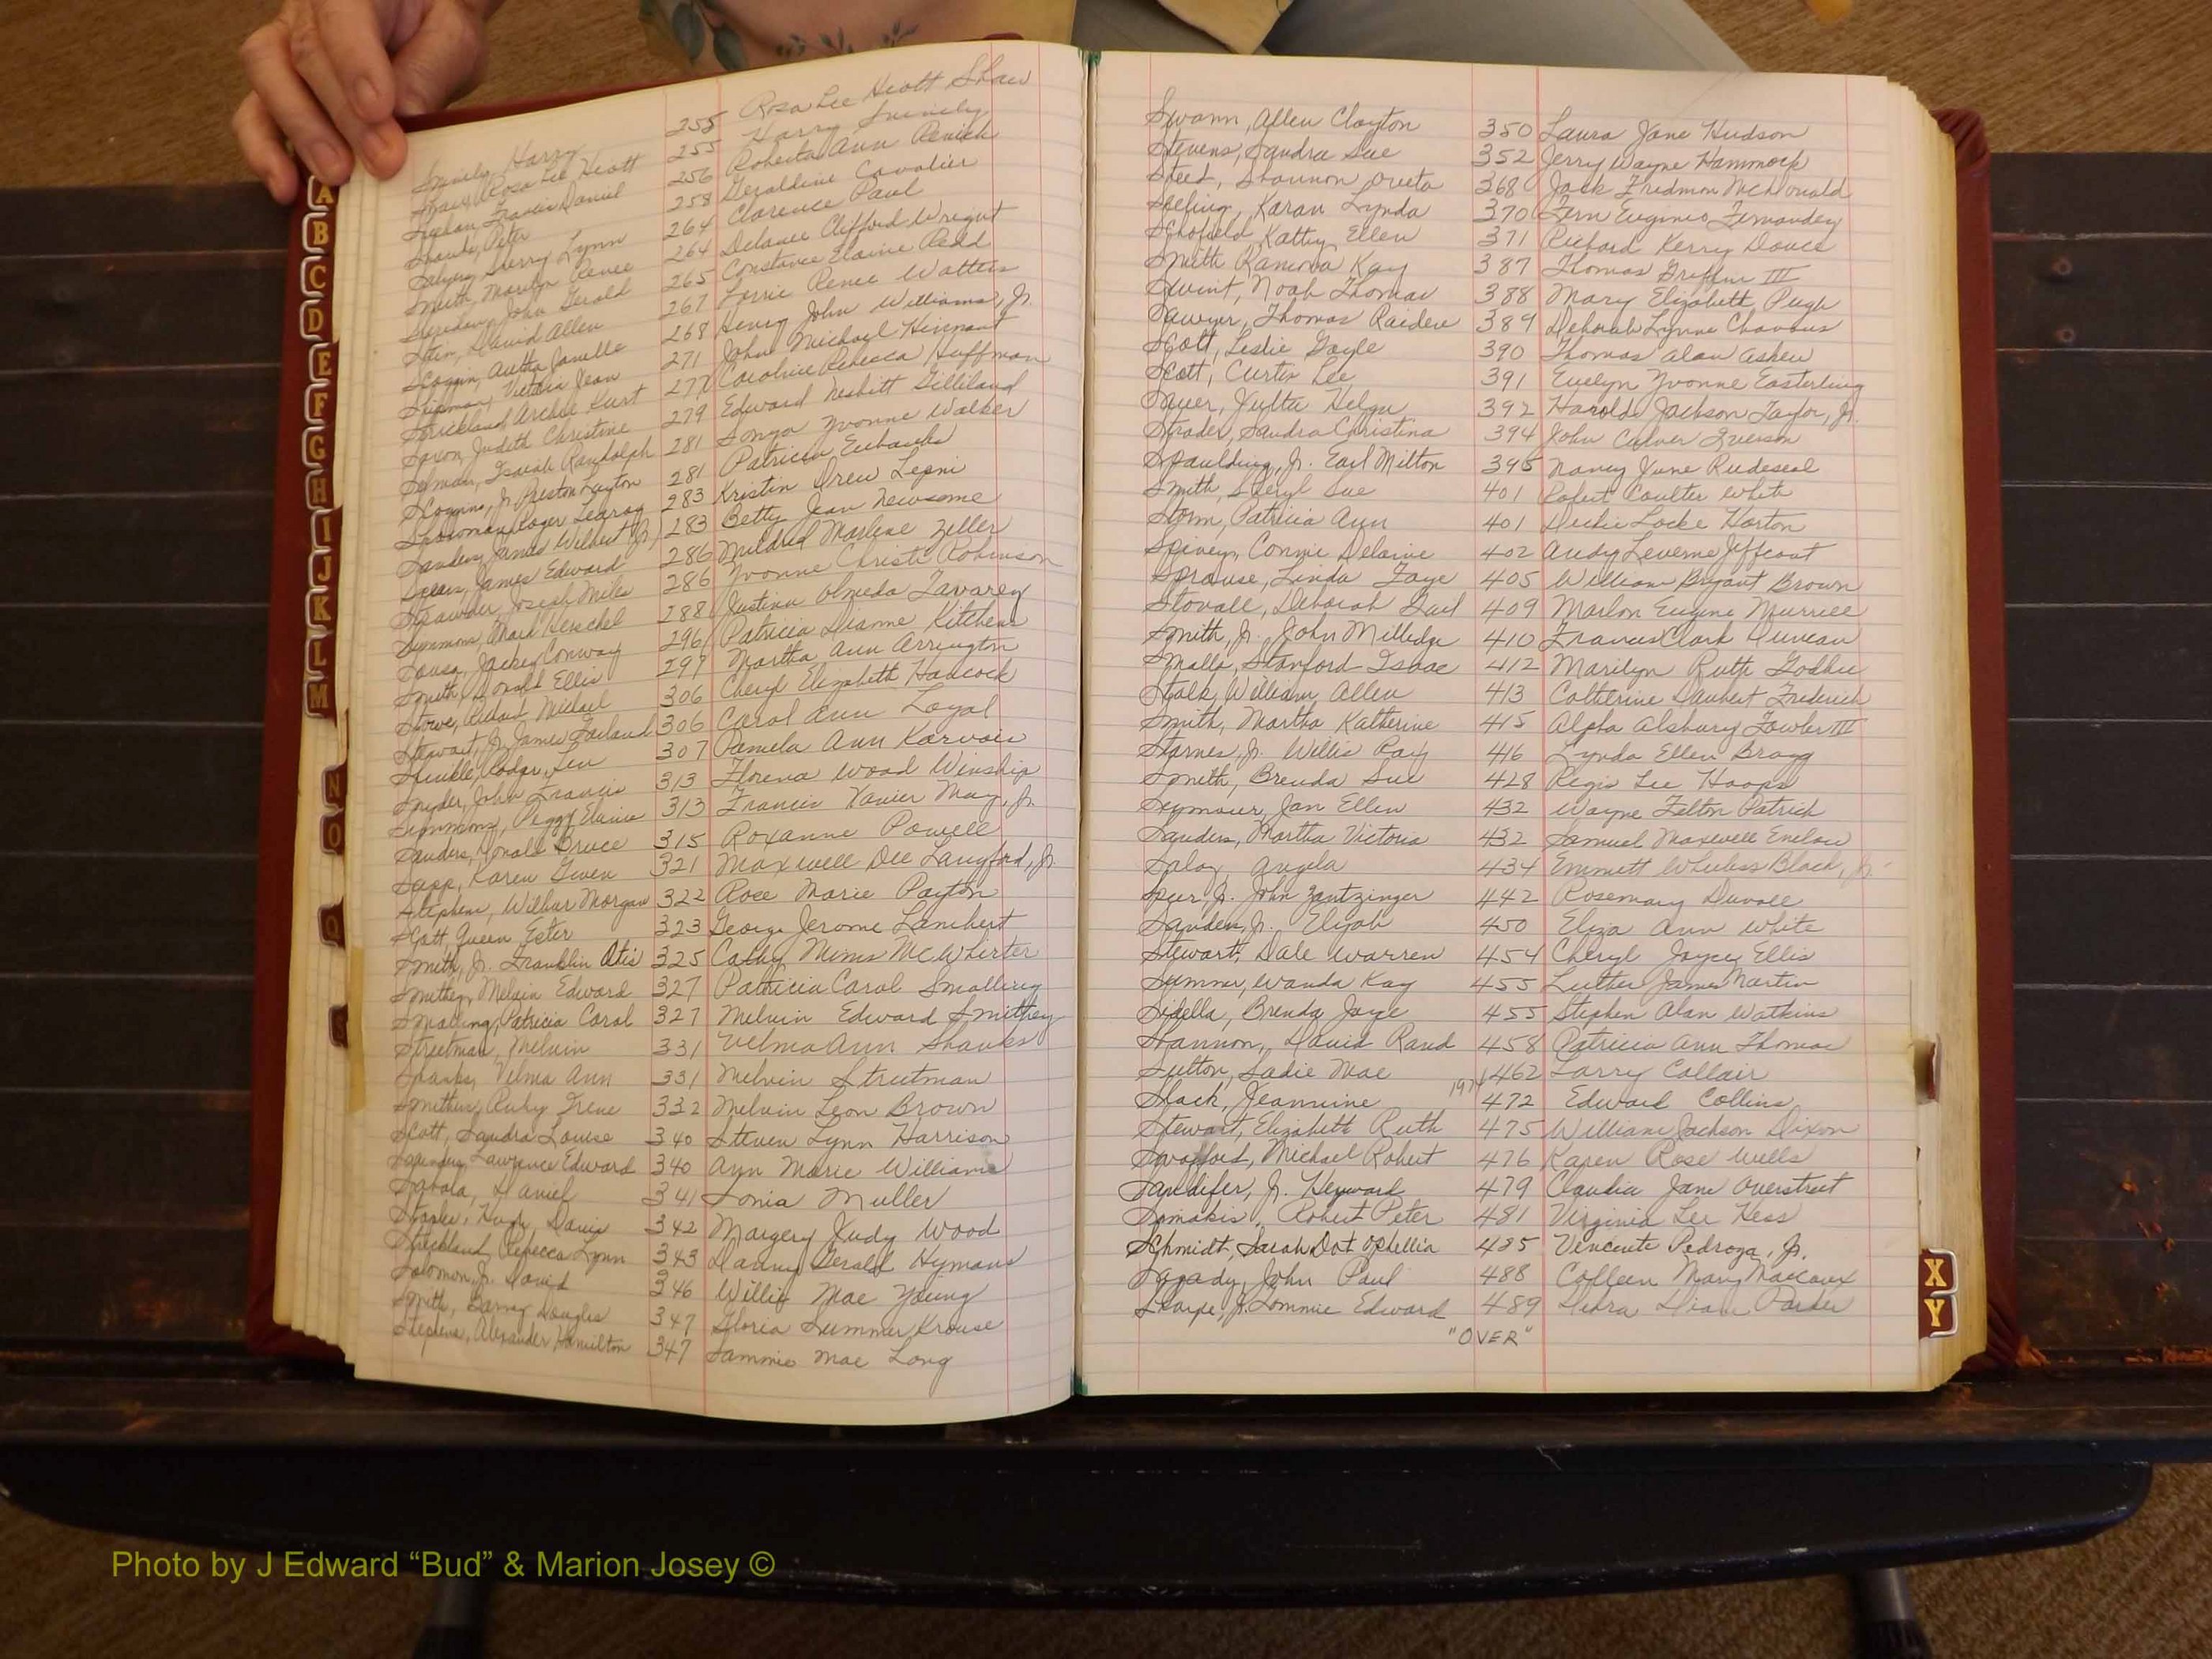 Snively, Harry 255 Rosa Lee Hiott Shaw
Shaw, Rosa Lee Hiott 255 Harry Snively
Francis Daniel 256 Roberta Ann Renick
Peter 258 Geraldine Cavalier
Sherry Lynn 264 Clarence Paul
Smith, Marilyn Renee 264 Delance Clifford Wright
John Gerald 265 Constance Elaine Redd
Stein, David Allen 267 Lorrie Renee Watters
Scoggin, Aletha Janelle 268 Henry John Williams, Jr.
Shipman, Victoria Jean 271 John Michael Hinnant
Strickland, Archie Kurt 277 Caroline Rebecca Huffman
Saxon, Judith Christine 279 Edward Nesbitt Gilliland
Isaiah Randolph 281 Sonya Yvonne Walker
Scoggins, Jr. Preston Layton 281 Patricia Eubanks
Roger Learoy 283 Kristin Drew Legni
Sanders, James Wilbert Jr. 283 Betty Jean Newsome
James Edward 286 Mildred Marlene Zeller
Strawder, Joseph Miles 286 Yvonne Christi Robinson
Simmons, Mark Herschel 288 Justina Olmeda Tavarez
Sousa, Jackey Conway 296 Patricia Dianne Kitchens
Smith, Donald Ellis 297 Martha Ann Arrington
Stowe, Richard Michael 306 Cheryl Elizabeth Hadcock
Stewart, Jr. James Garland 306 Carol Ann Loyal
Rodger Len 307 Pamela Ann Karvois
Snyder, John Francis 313 Florena Wood Winship
Simmons, Peggy Elaine 313 Francis Xavier May, Jr.
Sanders, Donald Bruce 315 Roxanne Powell
Sapp, Karen Gwen 321 Maxwell Dee Langford, Jr.
Stephens, Wilbur Morgan 322 Rose Marie Payton
Scott, Queen Ester 323 George Jerome Lambert
Smith, Jr. Franklin Otis 325 Cathy Mims McWhirter
Smithey, Melvin Edward 327 Patricia Carol Smalling
Smalling, Patricia Carol 327 Melvin Edward Smithey
Streetman, Melvin 331 Velma Ann Shanks
Shanks, Velma Ann 331 Melvin Streetman
Smithers, Ruby Irene 332 Melvin Leon Brown
Scott, Sandra Louise 340 Steven Lynn Harrison
Lawrence Edward 340 Ann Marie Williams
Daniel 341 Sonia Muller
Staples, Hugh Davis 342 Margery Judy Wood
Strickland, Rebecca Lynn 343 Danny Gerald Hymans
Solomon, Jr. David 346 Willie Mae Young
Smith, Larray Douglas 347 Gloria Summer Krouse
Stephens, Alexander Hamilton 347 Sammie Mae Long
Swann, Allen Clayton 350 Laura Jane Hudson
Stevens, Sandra Sue 352 Jerry Wayne Hammock
Steed, Shannon Oveta 368 Jack Fredmon McDonald
Karan Lynda 370 Fern Eugenio Fernandez
Schofield, Kathy Ellen 371 Richard Kerry Douce
Smith, Ramona Kay 387 Thomas Griffin III
Swint, Noah Thomas 388 Mary Elizabeth Pugh
Sawyer, Thomas Raiden 389 Deborah Lynne Chavous
Scott, Leslie Gayle 390 Thomas Alan Askew
Scott, Curtis Lee 391 Evelyn Yvonne Easterling
Sauer, Jutta Helga 392 Harold Jackson Taylor, Jr.
Strader, Sandra Christina 394 John Culver Iverson
Spaulding, Jr. Earl Milton 395 Nancy June Rudeseal
Smith, Sheryl Sue 401 Robert Coulter White
Storm, Patricia Ann 401 Dickie Locke Horton
Spivey, Connie Delaine 402 Andy Leverne Jeffcoat
Sprouse, Linda Faye 405 William Bryant Brown
Stovall, Deborah Gail 409 Marlon Eugene Murrell
Smith, Jr. John Milledge 410 Frances Clark Duncan
Smalls, Stanford Isaac 412 Marilyn Ruth Godbee
Stalk, William Allen 413 Catherine Daubert Frederick
Smith, Martha Katherine 415 Alpha Alsbury Fowler III
Starnes, Jr. Willis Ray 416 Lynda Ellen Bragg
Smith, Brenda Sue 428 Regis Lee Hoops
Seymour, Jan Ellen 432 Wayne Felton Patrick
Sanders, Martha Victoria 432 Samuel Maxwell Enslow
Angela 434 Emmett Wheeless Black, Jr.
Spur, Jr. John Zantzinger 442 Rosemary Duvall
Sanders, Jr. Elijah 450 Eliza Ann White
Stewart, Dale Warren 454 Cheryl Joyce Ellis
Summer, Wanda Kay 455 Luther James Martin
Sidella, Brenda Joyce 455 Stephen Alan Watkins
Shannon, David Rand 458 Patricia Ann Thomas
Sutton, Sadie Mae 462 Larry Collair
Slack, Jeannine 1974 472 Edward Collins
Stewart, Elizabeth Ruth 475 William Jackson Dixon
Swafford, Michael Robert 476 Karen Rose Wells
Sandifer, Jr. Heyward 479 Claudia Jane Overstreet
Samakis, Robert Peter 481 Virginia Lee Hess
Schmidt, Sarah Dot Ophellia 485 Vincente Pedroza, Jr.
John Paul 488 Colleen Mary
Sharpe, Jr. Lommie Edward 489 Debra Dian Parker
"OVER"
A
B
C
D
E
F
G
H
I
J
K
L
M
N
O
Q
S
X
Y
Photo by J Edward “Bud” & Marion Josey ©